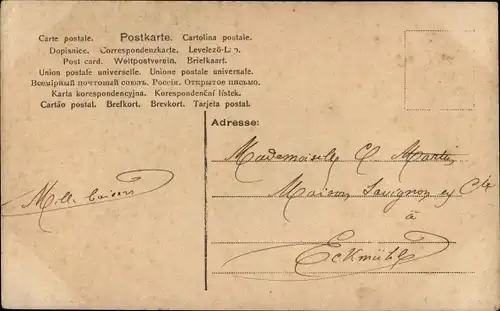 Carte postale. Postkarte. Cartolina postale.
Dopisnice. Correspondenzkarte. Levelező-Lap.
Post card. Weltpostverein. Briefkaart.
Union postale universelle. Unione postale universale.
Всемірный почтовый союзъ. Россія. Открытое письмо.
Karta korespondencyjna. Korespondenční lístek.
Cartão postal. Brefkort. Brevkort. Tarjeta postal.
Adresse:
Mademoiselle C. Martin
Maison Savignon et Cie
à
Eckmühl
Mille baisers